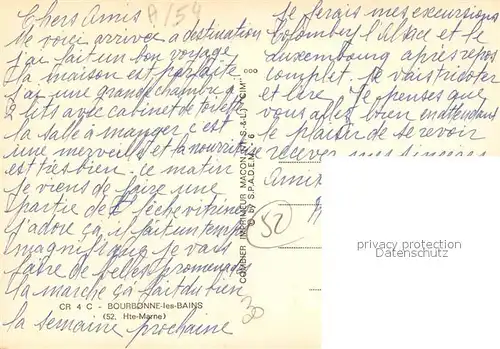 Chers Amis
A/154
Me voici arrivée a destination
j'ai fait un bon voyage
la maison est parfaite
j'ai une grande chambre a
2 lits avec cabinet de toilette
la salle à manger c'est
une merveille et la nourriture
est très bien. ce matin
je viens de faire une
partie de lèche vitrines
j'adore ça, il fait un temps
magnifique je vais
faire de belles promenades
la marche ça fait du bien
la semaine prochaine
je ferais mes excursions
Colombey l'Alsace et le
Luxembourg après repos
complet. Je vais tricoter
et lire. Je penses que
vous allez bien en attendant
le plaisir de se revoir
recevez mes sincères
Amit
COMBIER IMPRIMEUR MACON (S.-&-L.) "CIM"
© by S.P.A.D.E.M.
52
30
privacy protection
Datenschutz
CR 4 C - BOURBONNE-les-BAINS
(52, Hte-Marne)